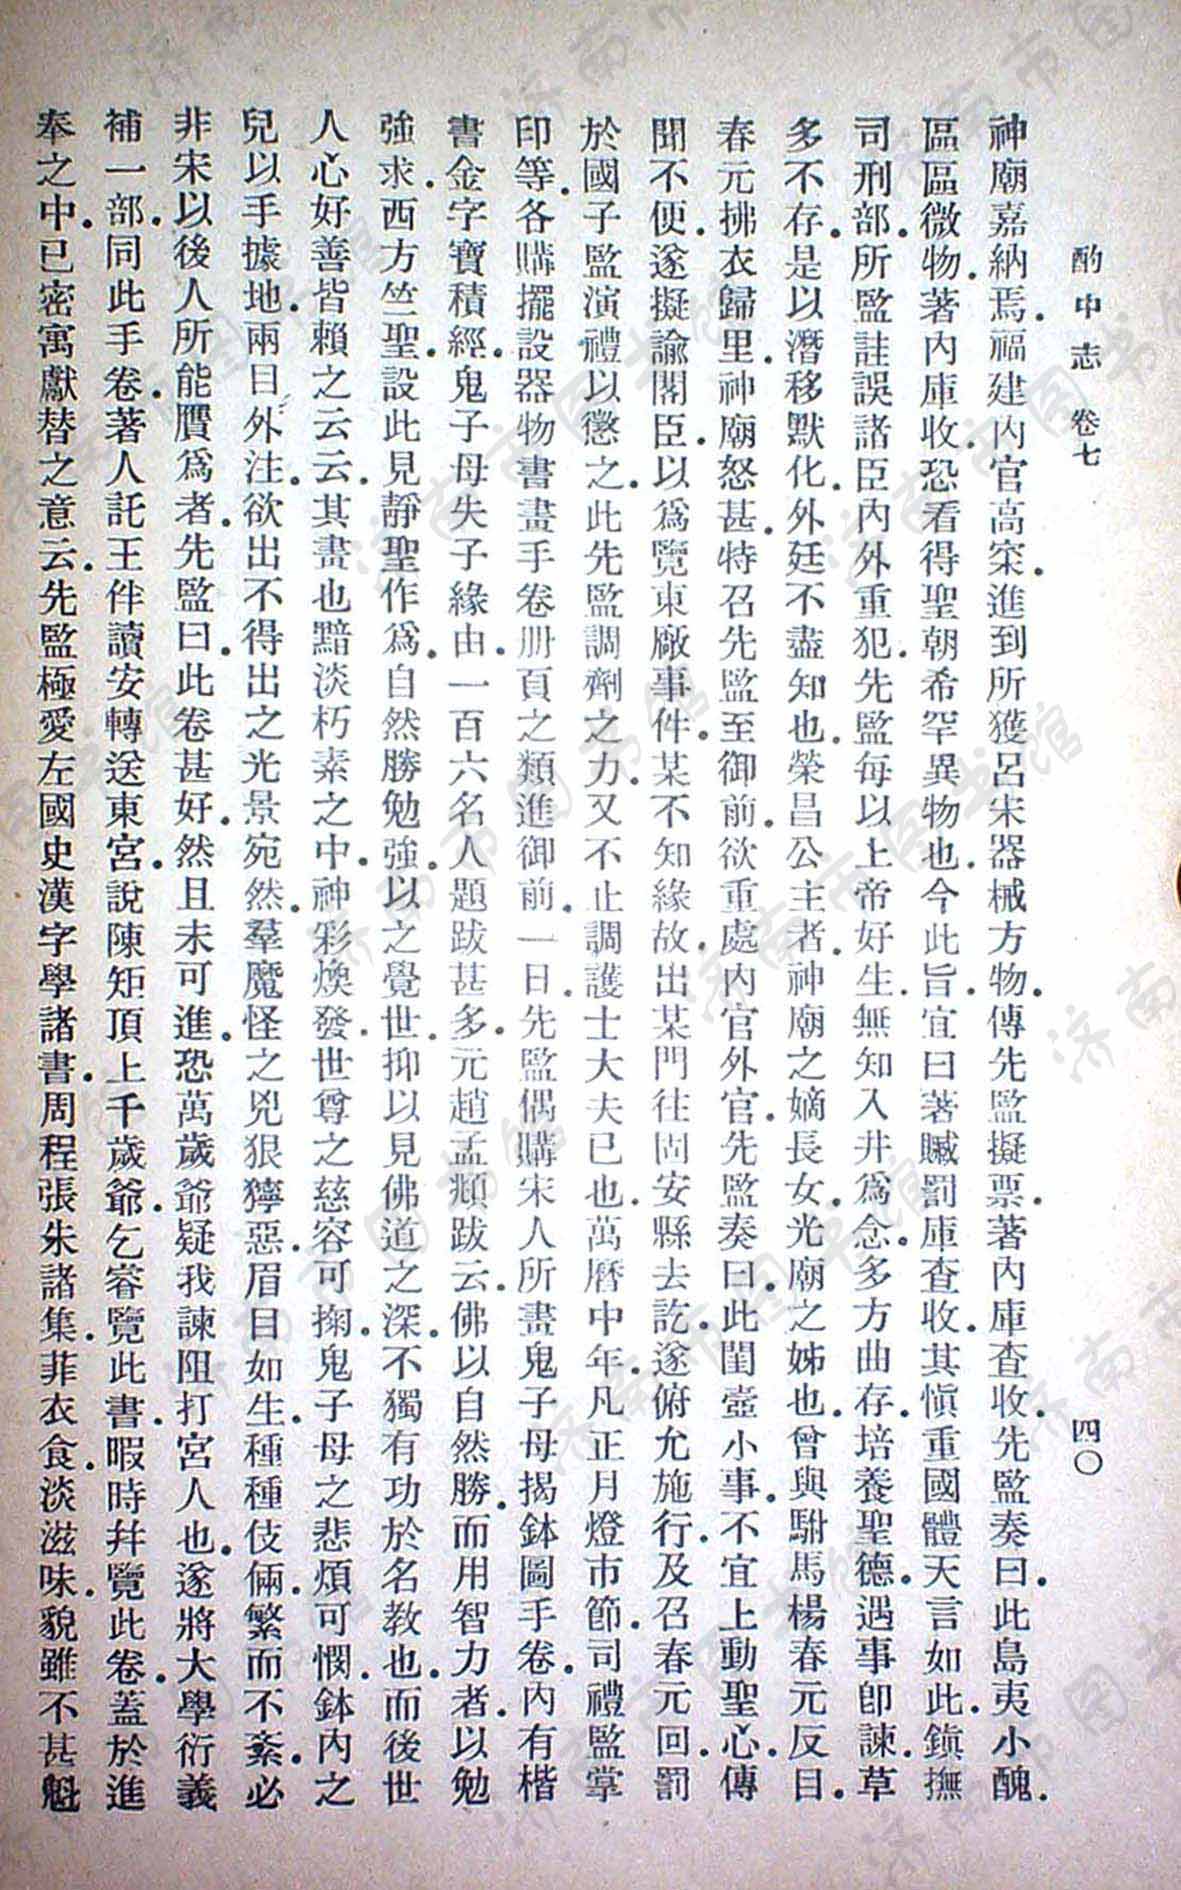 酌中志 卷七 四〇
神廟嘉納焉．福建內官高寀．進到所獲呂宋器械方物．傳先監擬票．著內庫查收．先監奏曰．此島夷小醜．
區區微物．著內庫收．恐看得聖朝希罕異物也．今此旨．宜曰著贓罰庫查收．其愼重國體．天言如此．鎭撫
司刑部．所監註誤諸臣．內外重犯．先監每以上帝好生．無知入井爲念．多方曲存．培養聖德．遇事卽諫．草
多不存．是以潛移默化．外廷不盡知也．榮昌公主者．神廟之嫡長女．光廟之姊也．曾與駙馬楊春元反目．
春元拂衣歸里．神廟怒甚．特召先監至御前．欲重處內官外官．先監奏曰．此閨壼小事．不宜上動聖心．傳
聞不便．遂擬諭閣臣．以爲覽東廠事件．某不知緣故．出某門往固安縣去訖．遂俯允施行．及召春元回．罰
於國子監演禮以懲之．此先監調劑之力．又不止調護士大夫已也．萬曆中年．凡正月燈市節．司禮監掌
印等．各購擺設器物書畫手卷册頁之類進御前．一日．先監偶購宋人所畫鬼子母揭鉢圖手卷．內有楷
書金字寶積經．鬼子母失子緣由．一百六名人題跋甚多．元趙孟頫跋云．佛以自然勝．而用智力者．以勉
強求．西方竺聖．設此見靜聖作爲．自然勝勉強．以之覺世．抑以見佛道之深．不獨有功於名教也．而後世
人心好善．皆賴之云云．其畫也．黯淡朽素之中．神彩煥發．世尊之慈容可掬．鬼子母之悲煩可憫．鉢內之
兒以手據地．兩目外注．欲出不得出之光景宛然．羣魔怪之兇狠獰惡．眉目如生．種種伎倆．繁而不紊．必
非宋以後人所能贋爲者．先監曰．此卷甚好．然且未可進．恐萬歲爺疑我諫阻打宮人也．遂將大學衍義
補一部．同此手卷．著人託王伴讀安轉送東宮．說陳矩頂上千歲爺．乞睿覽此書．暇時幷覽此卷．蓋於進
奉之中．已密寓獻替之意云．先監極愛左國史漢字學諸書．周程張朱諸集．菲衣食．淡滋味．貌雖不甚魁